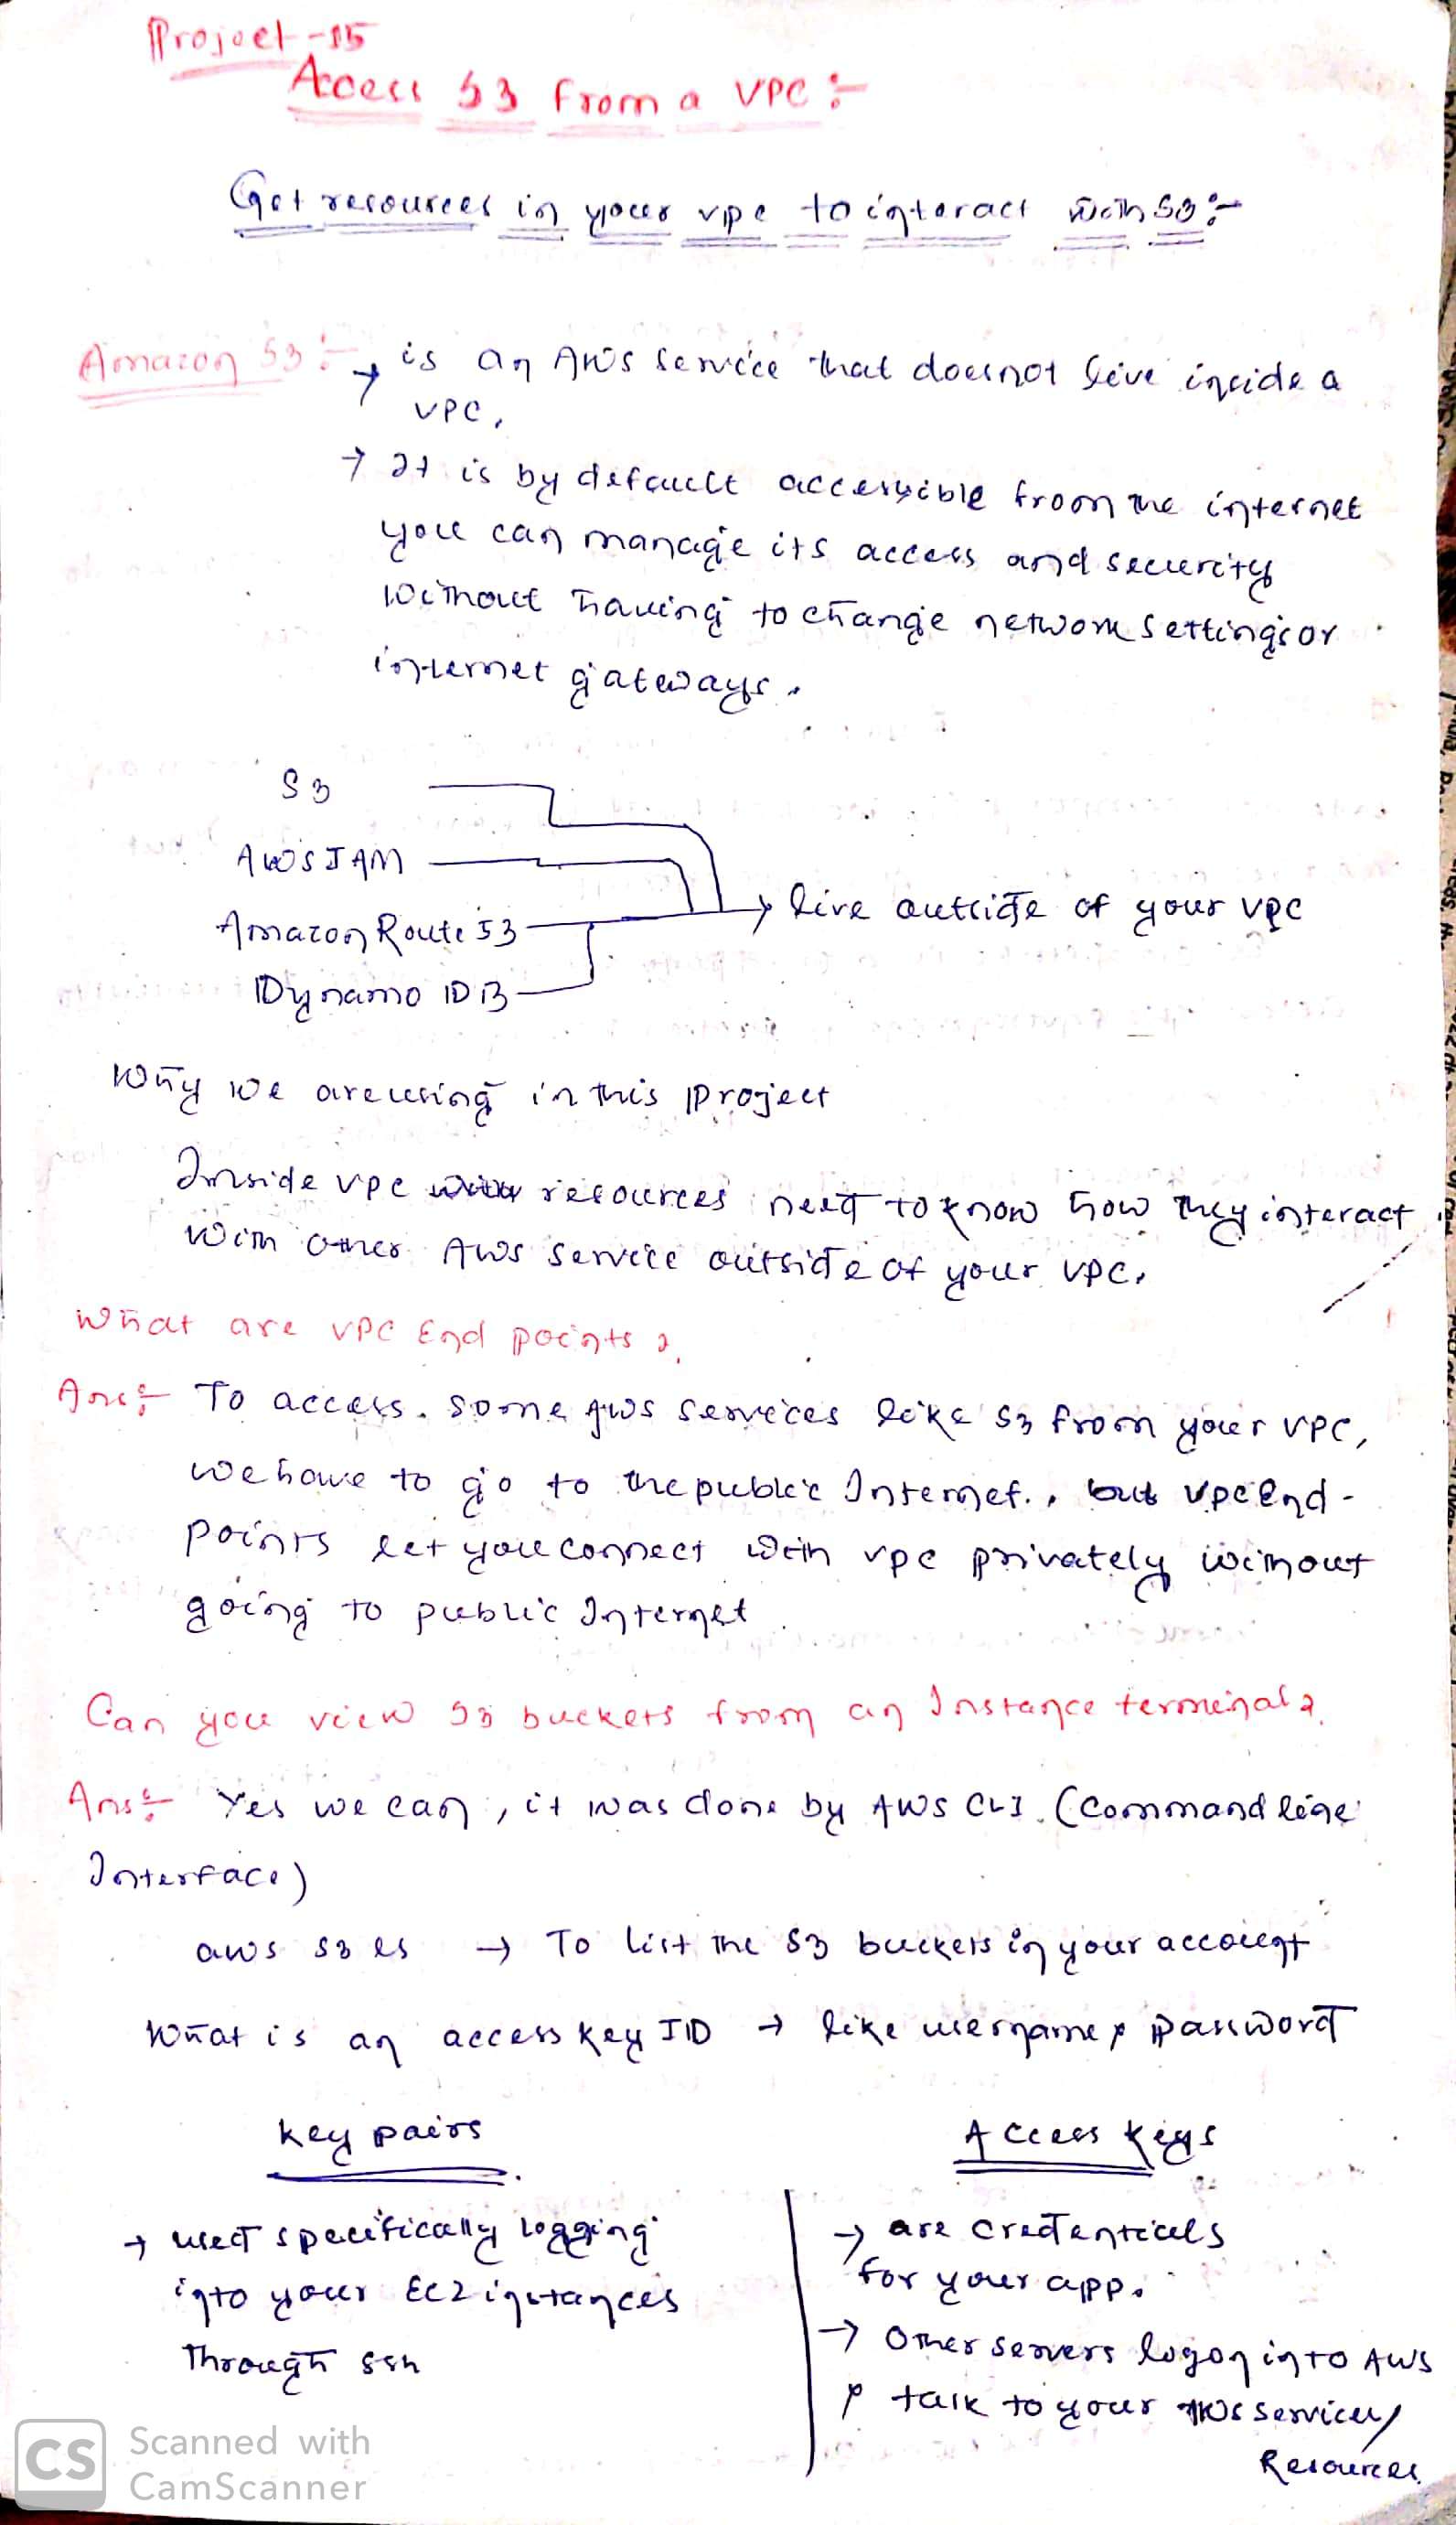 Project-15
Access S3 from a VPC :-
Get resources in your vpc to interact with S3 :-
Amazon S3 :- → is an AWS service that doesnot live inside a
VPC,
→ It is by default accessible from the internet
you can manage its access and security
without having to change network settings or
internet gateways.
S3
AWS IAM
Amazon Route 53 → live outside of your vpc
Dynamo DB
Why we are using in this Project
Inside vpc resources need to know how they interact
with other AWS service outside of your VPC.
What are VPC End points ?
Ans:- To access some AWS services like S3 from your VPC,
we have to go to the public Internet., but vpc End-
points let you connect with vpc privately without
going to public Internet
Can you view S3 buckets from an Instance terminal ?
Ans:- Yes we can, it was done by AWS CLI. (Command line
Interface)
aws s3 ls → To list the S3 buckets in your account
What is an access key ID → like username & Password
Key pairs
Access Keys
→ used specifically logging
into your EC2 instances
Through ssh
→ are credenticals
for your app.
→ Other servers logon into AWS
& talk to your AWS services/
Resources.
CS Scanned with
CamScanner